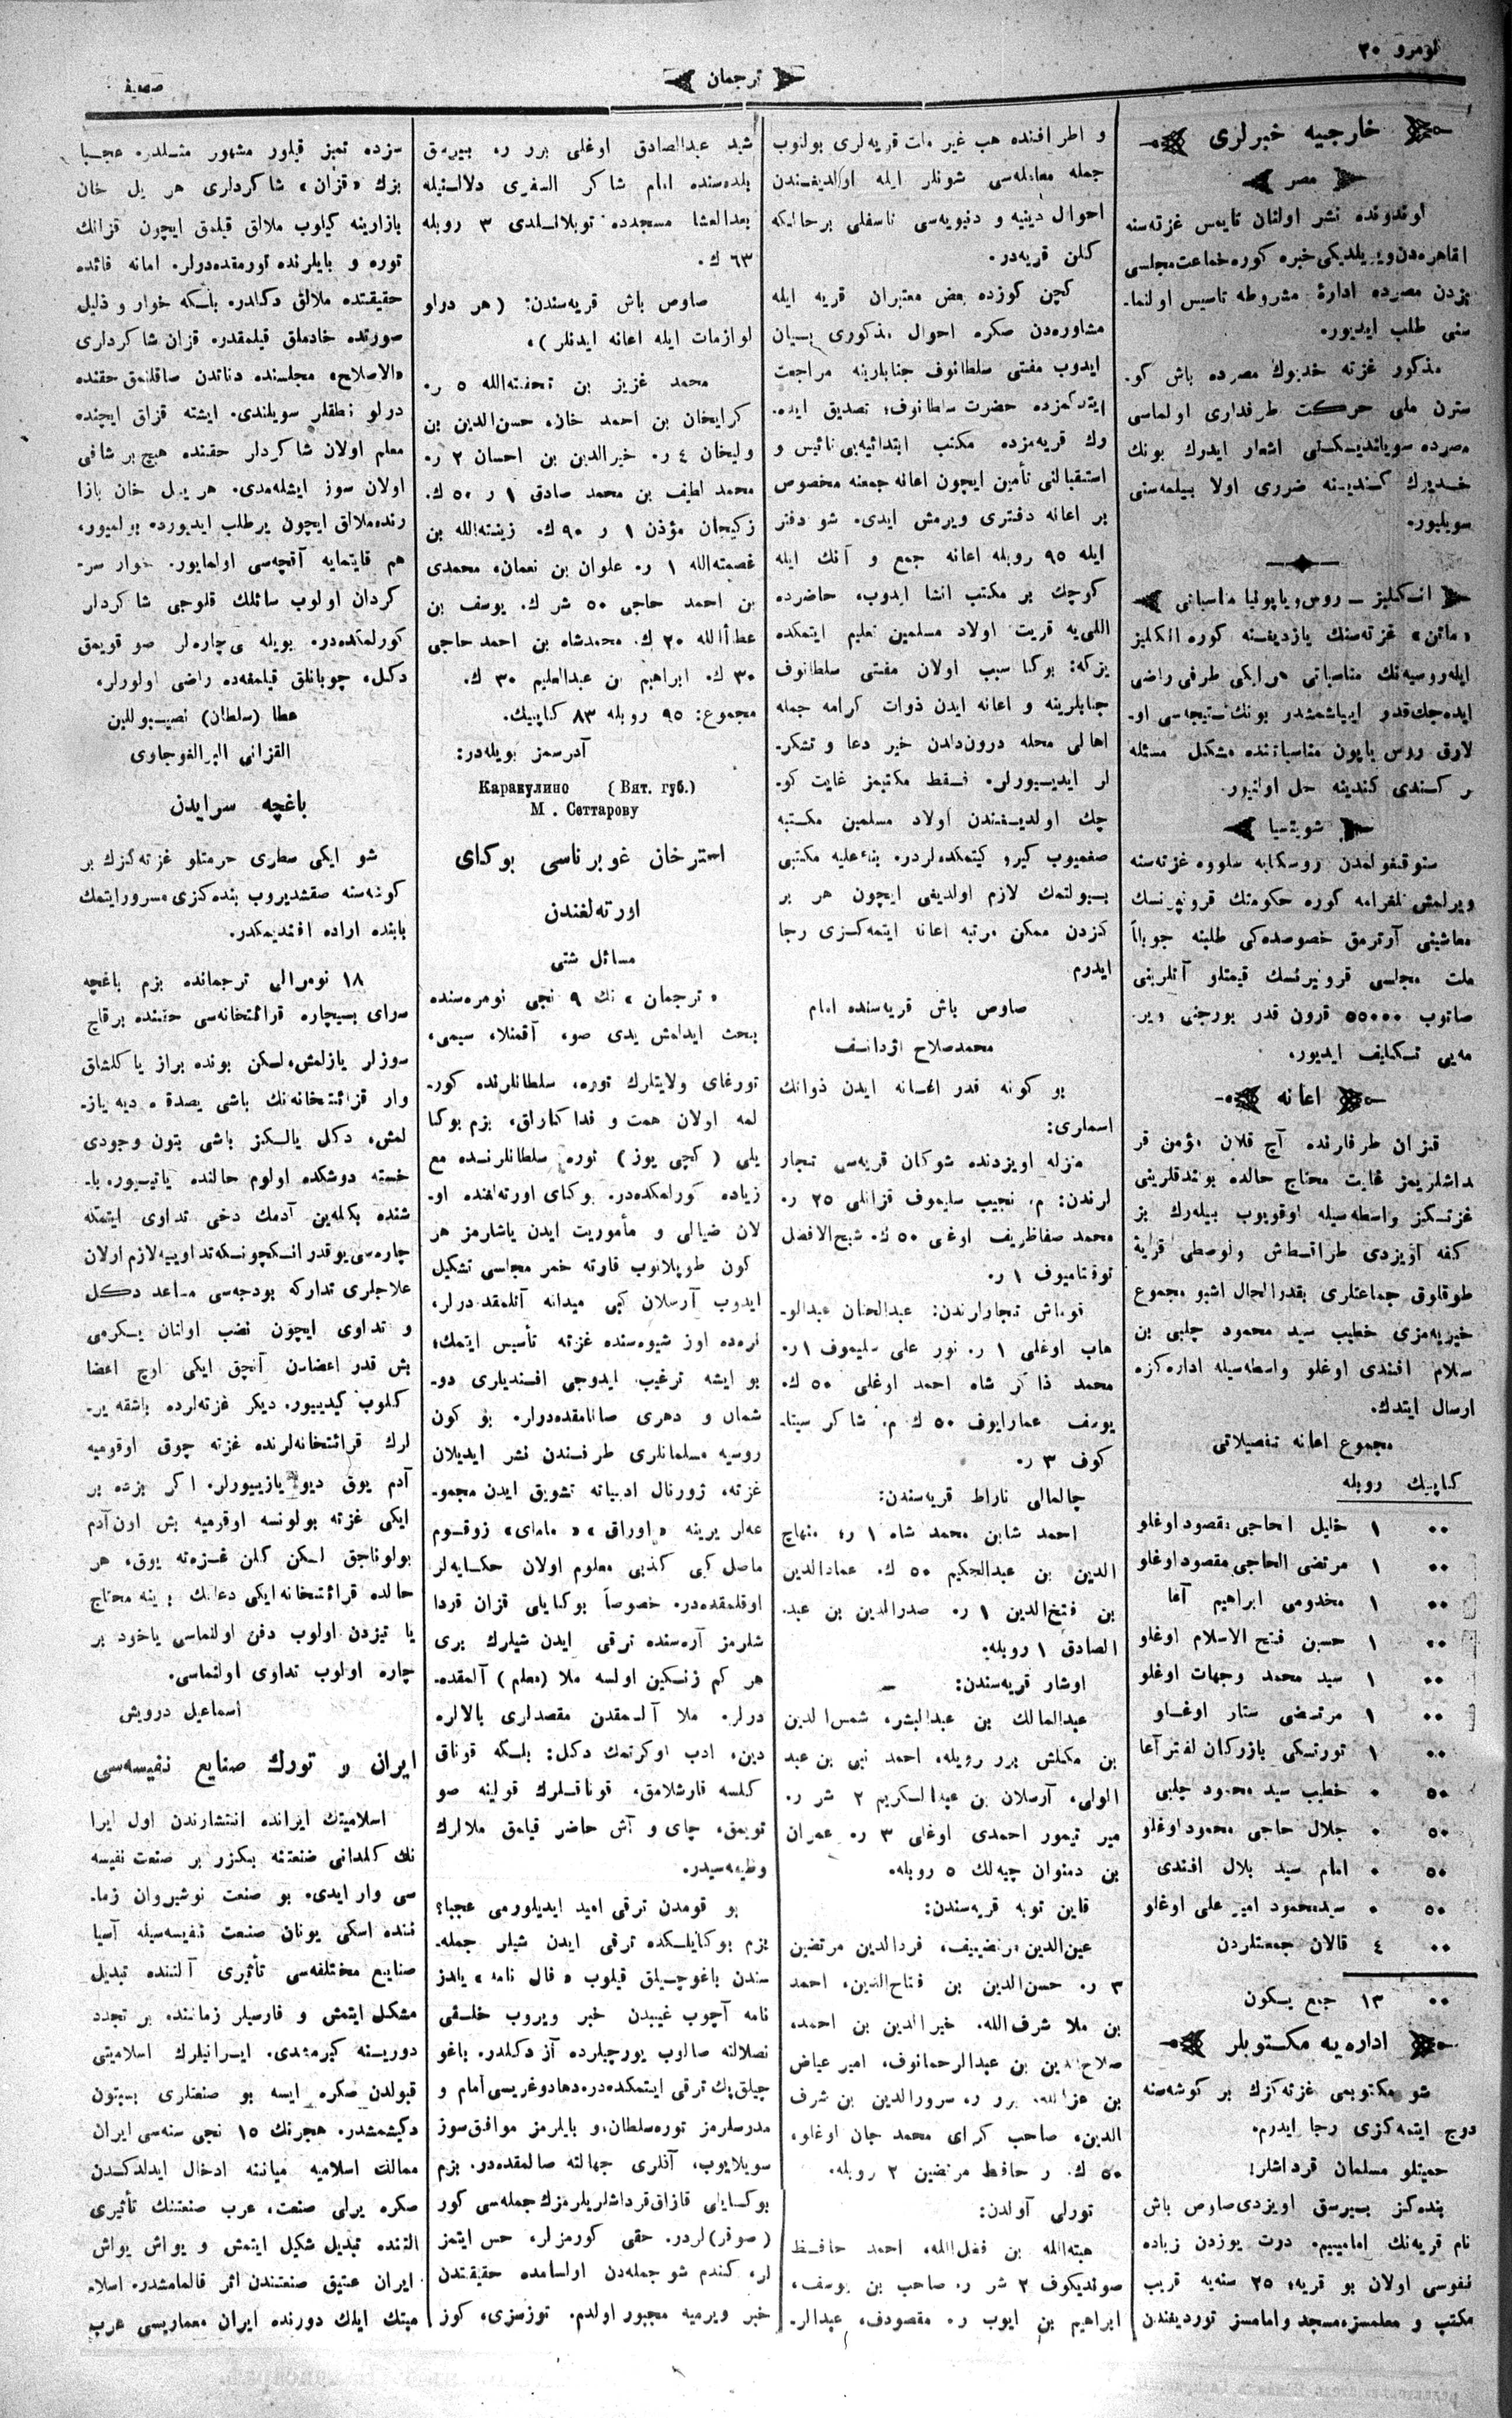 نومرو ٣٠
ترجمان
صحیفه
خارجیه خبرلری
مصر
لوندونده نشر اولنان تایمس غزته‌سنه
القاهره‌دن ویریلدیکی خبره کوره جماعت مجلسی
بزدن مصرده ادارۀ مشروطه تاسیس اولنما-
سنی طلب ایدیور.
مذکور غزته خدیوك مصرده باش کو-
سترن ملی حرکت طرفداری اولماسی
مصرده سویلندیکنی اشعار ایدرك بونك
خدیوك کندینه ضرری اولا بیلمه‌سنی
سویلیور.
انکلیز ــ روس و یاپونیا مناسباتی
«ماتن» غزته‌سنك یازدیغنه کوره انکلیز
ایله روسیه‌نك مناسباتی هر ایکی طرفی راضی
ایده‌جك قدر ایپاشمشدر بونك نتیجه‌سی او-
لارق روس یاپون مناسباتنده مشکل مسئله
لر کندی کندینه حل اولنیور.
شویتسیا
ستوقغولمدن روسکایه سلووه غزته‌سنه
ویرلمش تلغرامه کوره حکومتك قرونپرنسك
معاشینی آرترمق خصوصده‌کی طلبنه جواباً
ملت مجلسی قرونپرنسك قیمتلو آتلرینی
صاتوب ٥٥٠٠٠ قرون قدر بورجنی ویر-
مه‌یی تکلیف ایدیور.
اعانه
قزان طرفلرنده آچ قلان مؤمن قر
داشلریمز غایت محتاج حالده بولندقلرینی
غزته‌کز واسطه‌سیله اوقویوب بیله‌رك بز
کفه اویزدی طراقطاش ولوسطی قرایهٔ
طوقلوق جماعتلری بقدر الحال اشبو مجموع
خیریه‌مزی خطیب سید محمود چلبی بن
سلام افندی اوغلو واسطه‌سیله اداره‌کزه
ارسال ایتدك.
مجموع اعانه تفصیلاتی
کاپیك روبله
٠٠ ١ خلیل الحاجی مقصود اوغلو
٠٠ ١ مرتضی الحاجی مقصود اوغلو
٠٠ ١ مخدومی ابراهیم آغا
٠٠ ١ حسین فتح الاسلام اوغلو
٠٠ ١ سید محمد وجهات اوغلو
٠٠ ١ مرتضی ستار اوغلو
٠٠ ١ تورتسکی بازرکان لفترآغا
٥٠ ٠ خطیب سید محمود چلبی
٥٠ ٠ جلال حاجی محمود اوغلو
٥٠ ٠ امام سید بلال افندی
٥٠ ٠ سید محمود امیر علی اوغلو
٠٠ ٤ قالان جمعتلردن
٠٠ ١٣ جمع یکون
اداره‌یه مکتوبلر
شو مکتوبمی غزته‌کزك بر کوشه‌سنه
درج ایتمه‌کزی رجا ایدرم.
حمیتلو مسلمان قرداشلر!
بنده‌کز بیرسق اویزدی صاوص باش
نام قریه‌نك امامییم. درت یوزدن زیاده
نفوسی اولان بو قریه؛ ٢٥ سنه‌یه قریب
مکتب و معلمسز، مسجد و امامسز توردیغندن
و اطرافنده هب غیر ملت قریه‌لری بولنوب
جمله معامله‌سی شونلر ایله اولدیغندن
احوال دینیه و دنیویه‌سی تاسفلی بر حالیکه
کلن قریه‌در.
کچن کوزده بعض معتبران قریه ایله
مشاوره‌دن صکره احوال مذکوری بیان
ایدوب مفتی سلطانوف جنابلرینه مراجعت
ایتدکمزده حضرت سلطانوف؛ تصدیق ایده-
رك قریه‌مزده مکتب ابتدائیه‌یی تائیس و
استقبالنی تأمین ایچون اعانه جمعنه مخصوص
بر اعانه دفتری ویرمش ایدی. شو دفتر
ایله ٩٥ روبله اعانه جمع و آنك ایله
کوچك بر مکتب انشا ایدوب، حاضرده
اللی‌یه قریت اولاد مسلمین تعلیم ایتمکده
یزکه: بوکا سبب اولان مفتی سلطانوف
جنابلرینه و اعانه ایدن ذوات کرامه جمله
اهالی محله درون‌دلدن خیر دعا و تشکر-
لر ایدییورلر. فقط مکتبمز غایت کو-
چك اولدیغندن اولاد مسلمین مکتبه
صغمیوب کیرو کیتمکده‌لردر. بناءً علیه مکتبی
بیولتمك لازم اولدیغی ایچون هر بر
کزدن ممکن مرتبه اعانه ایتمه‌کزی رجا
ایدرم
صاوص باش قریه‌سنده امام
محمد صلاح
بو کونه قدر احسانه ایدن ذواتك
اسماری:
منزله اویزدنده شوکان قریه‌سی تجار
لرندن: م. نجیب سلیموف قزانلی ٢٥ ر.
محمد صفا ظریف اوغی ٥٠ ك. شیح الافضل
توقتامیوف ١ ر.
قوماش تجارلرندن: عبدالحنان عبدالو-
هاب اوغلی ١ ر. نور علی سلیموف ١ ر.
محمد ذاکر شاه احمد اوغلی ٥٠ ك.
یوسف عمارایوف ٥٠ ك م. شاکر سیتا-
کوف ٣ ر.
چالمالی ناراط قریه‌سندن:
احمد شابن محمد شاه ١ ر، منهاج
الدین بن عبدالحکیم ٥٠ ك. عمادالدین
بن فتخ‌الدین ١ ر. صدرالدین بن عبد-
الصادق ١ روبله.
اوشار قریه‌سندن: ــ
عبدالمالك بن عبدالبشر، شمس‌الدین
بن مکملش برر روبله، احمد نبی بن عبد
الولی، آرسلان بن عبدالکریم ٢ شر ر.
میر تیمور احمدی اوغلی ٣ ر. عمران
بن دمنوان چیه‌لك ٥ روبله.
قاین توبه قریه‌سندن:
عین‌الدین مرتضییف، فردالدین مرتضین
٣ ر. حسن‌الدین بن فتاح‌الدین، احمد
بن ملا شرف‌الله، خیرالدین بن احمد،
صلاح‌الدین بن عبدالرحمانوف، امیر عیاض
بن عزالله برر ر. سرورالدین بن شرف
الدین، صاحب کرای محمد جان اوغلو،
٥٠ ك. ر حافظ مرتضین ٢ روبله.
تورلی آولدن:
هبته‌الله بن فضل‌الله، احمد حافظ
صوندیکوف ٢ شر ر. صاحب بن یوسف،
ابراهیم بن ایوب ر. مقصودف، عبدالر-
شید عبدالصادق اوغلی برر ر. بیرسق
بلده‌سنده امام شاکر السفری دلالتیله
بعدالعشا مسجدده توبلاالدی ٣ روبله
٦٣ ك.
صاوص باش قریه‌سندن: (هر درلو
لوازمات ایله اعانه ایدنلر).
محمد عزیز بن تحفته‌الله ٥ ر.
کرایخان بن احمد خان، حسن‌الدین بن
ولیخان ٤ ر. خیرالدین بن احسان ٢ ر.
محمد لطیف بن محمد صادق ١ ر ٥٠ ك.
زکیجان مؤذن ١ ر ٩٠ ك. زینته‌الله بن
عصمته‌الله ١ ر. علوان بن نعمان، محمدی
بن احمد حاجی ٥٠ شر ك. یوسف بن
عطأالله ٢٠ ك. محمدشاه بن احمد حاجی
٣٠ ك. ابراهیم بن عبدالعلیم ٣٠ ك.
مجموع: ٩٥ روبله ٨٣ کاپیك.
آدرسمز بویله‌در:
Каракулино (Вят. губ.)
М. Сеттарову
استرخان غوبرناسی بوکای
اورته‌لغندن
مسائل شتی
«ترجمان» نك ٩ نجی نومره‌سنده
بحث ایدلمش یدی صو، آقمنلا، سیمی،
تورغای ولایتلرك توره، سلطانلرنده کور-
لمه اولان همت و فداکارلق، بزم بوکا
یلی (کچی یوز) توره سلطانلرنده مع
زیاده کورلمکده‌در. بوکای اورته‌لغنده او-
لان ضیالی و مأموریت ایدن یاشلرمز هر
کون طوپلانوب قارته خمر مجلسی تشکیل
ایدوب آرسلان کبی میدانه آتلمقده‌درلر،
نره‌ده اوز شیوه‌سنده غزته تأسیس ایتمك؛
بو ایشه ترغیب ایدوجی افندیلری دو-
شمان و دهری صانامقده‌درلر. بو کون
روسیه مسلمانلری طرفندن نشر ایدیلان
غزته، ژورنال ادبیاته تشویق ایدن مجمو-
عه‌لر یرینه «اوراق» «ماملی» زوقوم
ماصل کبی کذبی معلوم اولان حکایه‌لر
اوقلمقده‌در. خصوصاً بوکایلی قزان قردا
شلرمز آره‌سنده ترقی ایدن شیلرك بری
هر کم زنکین اولسه ملا (معلم) آلمقده-
درلر. ملا آلمقدن مقصدلری بالالره
دین، ادب اوکرتمك دکل: بلکه قوناق
کلسه قارشلامق، قوناقلرك قولینه صو
تویمق، چای و آش حاضر قیلمق ملالرك
وظیفه‌سیدر.
بو قومدن ترقی امید ایدیلورمی عجبا؟
بزم بوکایلکده ترقی ایدن شیلر جمله-
سندن باغوچیلق قیلوب «فال نامه» یلدز
نامه آچوب غیبدن خبر ویروب خلقی
نصلالته صالوب یورچیلرده آز دکلدر. باغو
چیلق پك ترقی ایتمکده‌در، دها دوغریسی امام و
مدرسلرمز توره سلطان، و بایلرمز موافق سوز
سویلایوب، آنلری جهالته صالمقده‌در. بزم
بوکایلی قازاق قرداشلریلرمزك جمله‌سی کور
(صوقر) لردر. حقی کورمزلر، حس ایتمز
لر، کندم شو جمله‌دن اولسامده حقیقتدن
خبر ویرمیه مجبور اولدم. توزسزی، کوز
سزده تمیز قیلور مشهور مثلدر. عجبا
بزك «قزان» شاکردلری هر یل خان
بازارینه کیلوب ملالق قیلمق ایچون قزاتك
توره و بایلرنده تورمقده‌درلر. امانه فائده
حقیقتده ملالق دکلدر. بلکه خوار و ذلیل
صورتده خادملق قیلمقدر. قزان شاکردلری
«الاصلاح» مجلسنده دناتدن صاقلنمق حقنده
درلو نطقلر سویلندی. ایشته قزاق ایچنده
معلم اولان شاکردلر حقنده هیچ بر شافی
اولان سوز ایشله‌مدی. هر ییل خان بازا
رنده ملالق ایچون یر طلب ایدیورده بولمیور،
هم قایتمایه آقچه‌سی اولمایور. خوار سر-
کردان اولوب سائلك قلوجی شاکردلر
کورلمکده‌در. بویله بی‌چاره‌لر صو قویمق
دکل، چوبانلق قیلمغه‌ده راضی اولورلر.
عطا (سلطان) نصیبوللین
القزانی
باغچه سرایدن
شو ایکی سطری حرمتلو غزته‌کزك بر
کوشه‌سنه صقشدیروب بنده‌کزی مسرور ایتمك
بابنده اراده افندیمکدر.
١٨ نومرالی ترجمانده بزم باغچه
سرای بیچاره قرائتخانه‌سی حقنده بر قاچ
سوزلر یازلمش، لکن بونده براز یاکلشلق
وار قرائتخانه‌نك باشی یصدقه دیه یاز-
لمش، دکل یالکز باشی بتون وجودی
خسته دوشکده اولوم حالنده یاتییور، با-
شنده بکله‌ین آدمك دخی تداوی ایتمکه
چاره‌سی یوقدر انکچونکه تداوییه لازم اولان
علاجلری تدارکه بودجه‌سی مساعد دکل
و تداوی ایچون نصب اولنان یکرمی
بش قدر اعضادن آنجق ایکی اوچ اعضا
کلوب کیدییور. دیکر غزته‌لرده باشقه یر-
لرك قرائتخانه‌لرنده غزته چوق اوقومیه
آدم یوق دیو یازییورلر. اکر بزده بر
ایکی غزته بولونسه اوقرمیه بش اون آدم
بولوناجق لکن کلن غزته یوق، هر
حالده قرائتخانه ایکی دعانك برینه محتاج
یا تیزدن اولوب دفن اولنماسی یاخود بر
چاره اولوب تداوی اولنماسی.
اسماعیل درویش
ایران و تورك صنایع نفیسه‌سی
اسلامیتك ایرانده انتشارندن اول ایرا
نك کلدانی صنعتنه بکزر بر صنعت نفیسه
سی وار ایدی. بو صنعت نوشیروان زما-
ننده اسکی یونان صنعت نفیسه‌سیله آسیا
صنایع مختلفه‌سی تأثیری آلتنده تبدیل
مشکل ایتمش و فارسیلر زماننده بر تجدد
دوریسنه کیرمشدی. ایرانیلرك اسلامیتی
قبولدن صکره ایسه بو صنعتلری بسبتون
دکیشمشدر. هجرتك ١٥ نجی سنه‌سی ایران
ممالك اسلامیه میاننه ادخال ایدلدکدن
صکره یرلی صنعت، عرب صنعتنك تأثیری
التنده تبدیل شکیل ایتمش و یواش یواش
ایران عتیق صنعتندن اثر قالمامشدر. اسلا-
میتك ایلك دورنده ایران معماریسی عرب